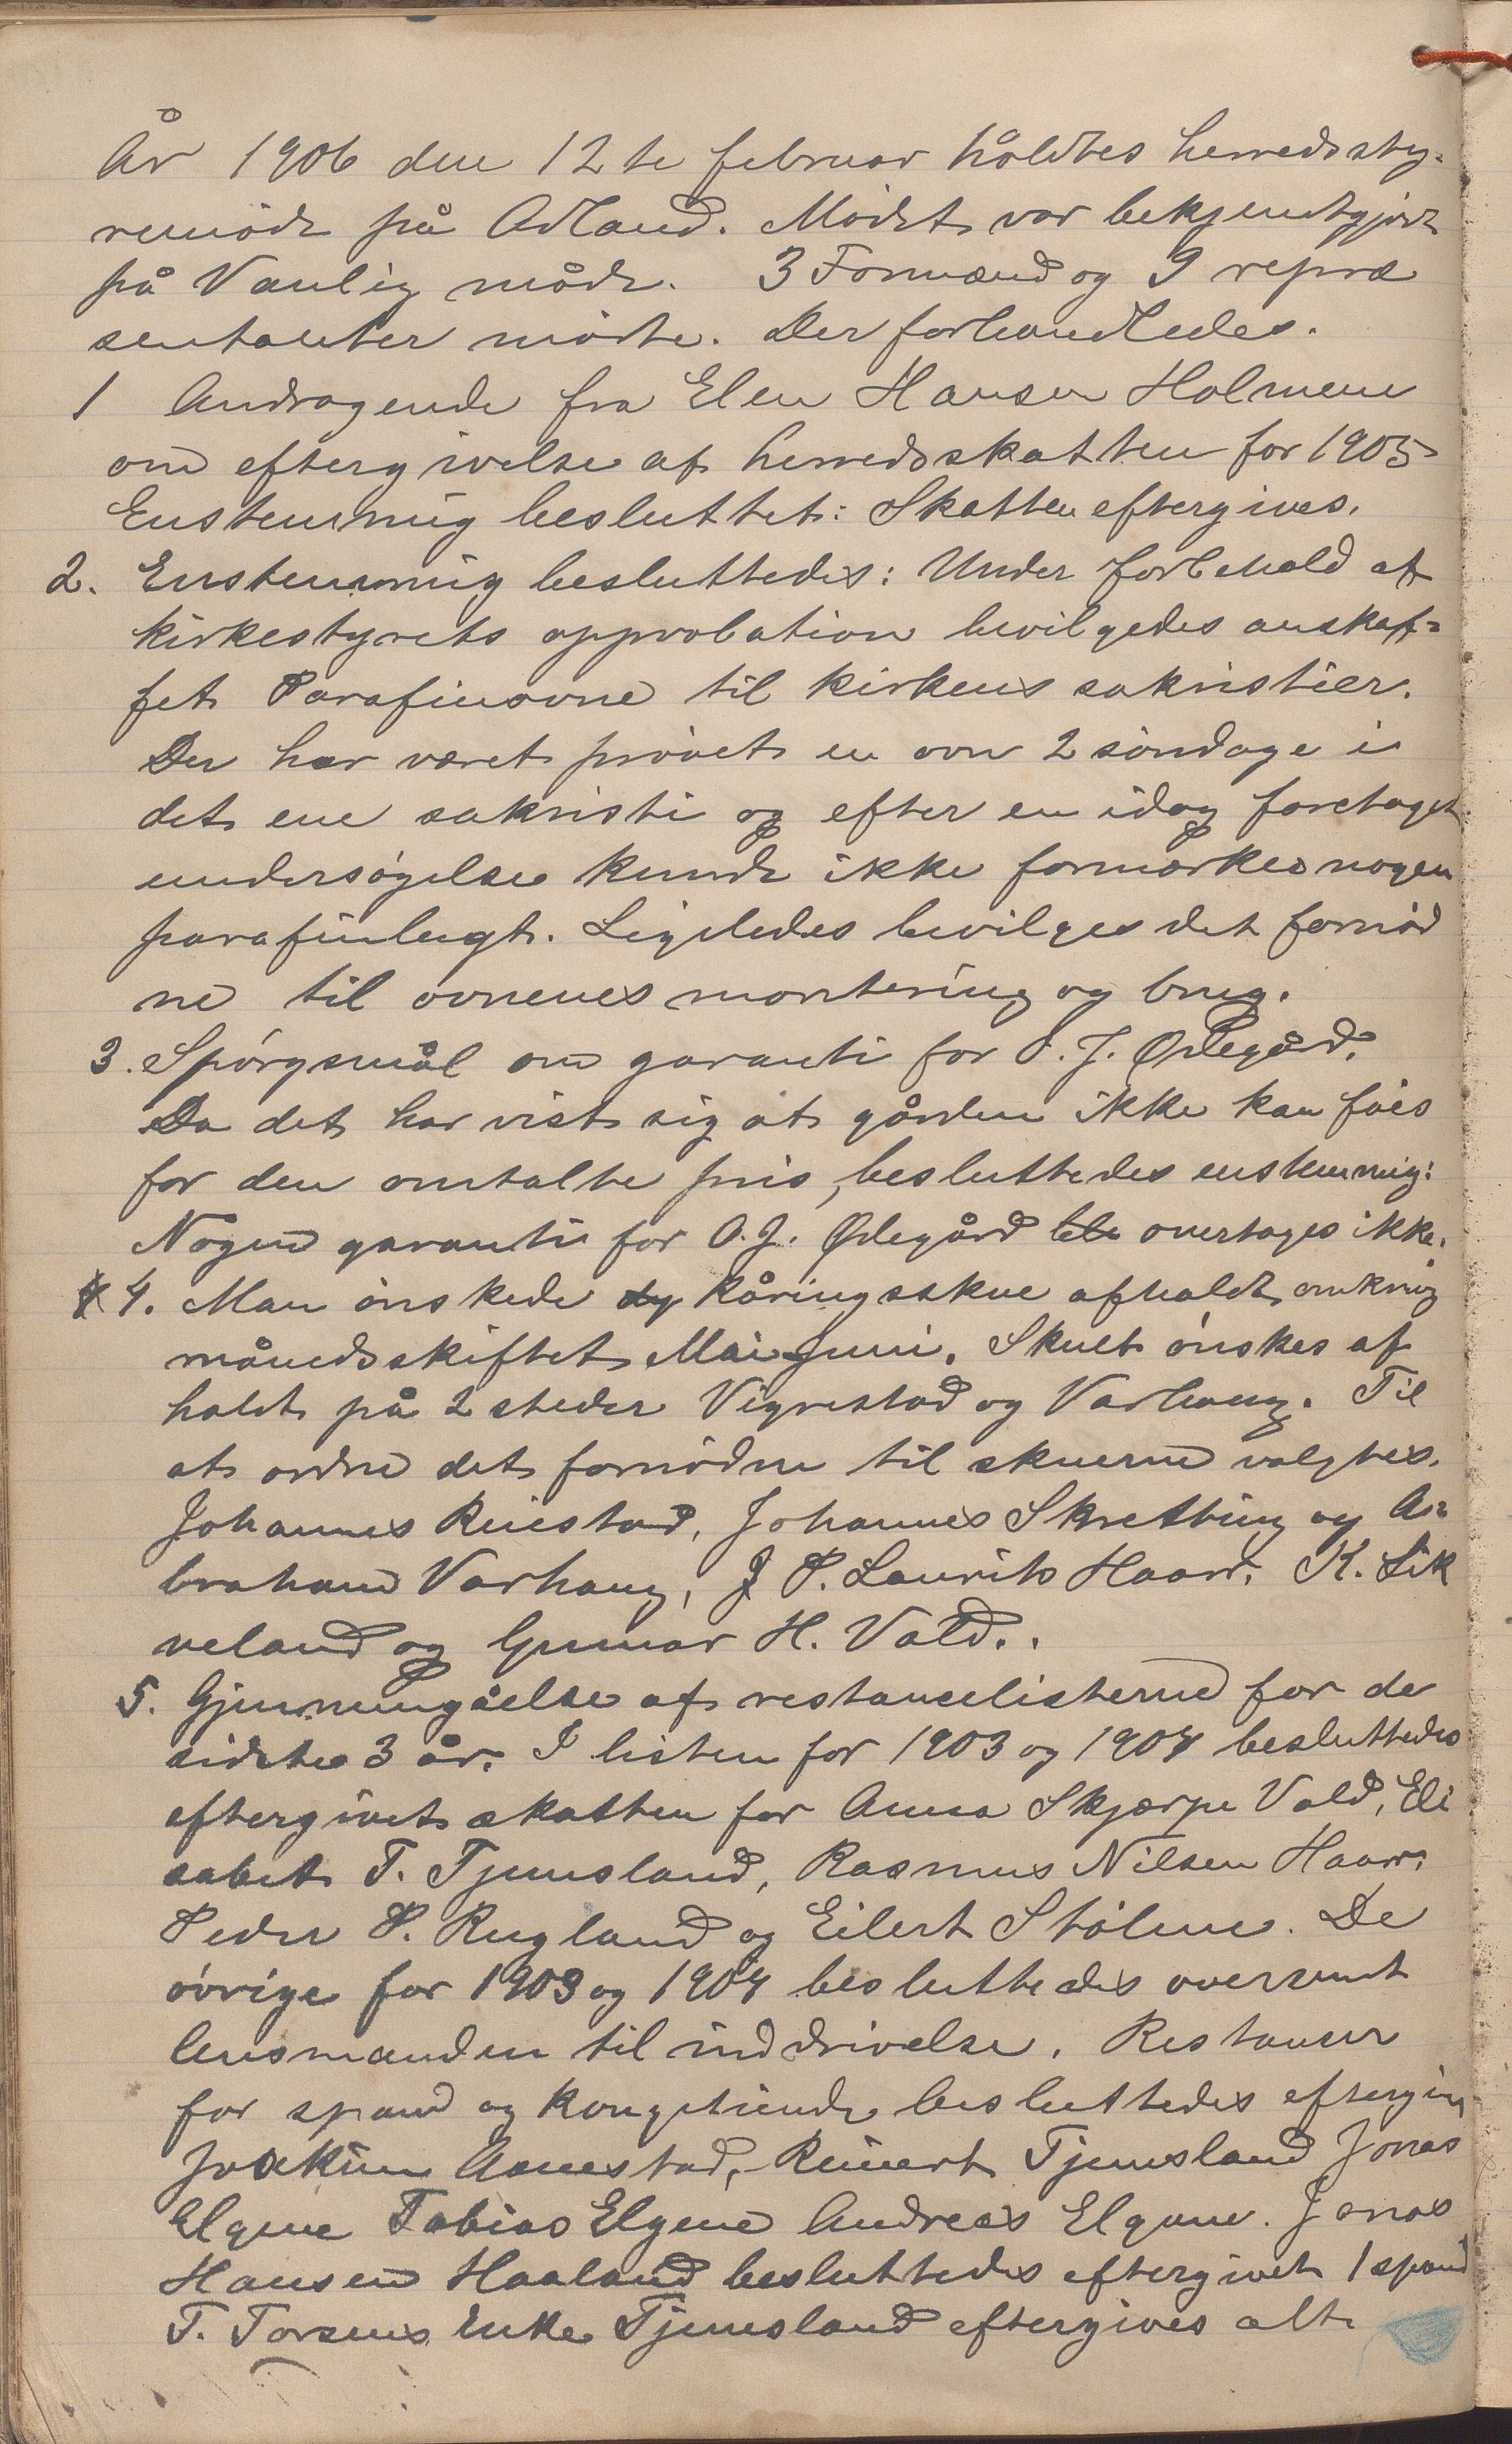 År 1906 den 12te februar håldtes herredssty-
remöde på Odland. Mödet var bekjendtgjort
på Vanlig måde. 3 Formænd og 9 repræ
sentanter mödte. Der forhandledes.
1 Andragende fra Elen Hansen Holmene
om eftergivelse af herredsskatten for 1905
Enstemmig besluttet: Skatten eftergives.
2. Enstemmig besluttedes: Under forbehold af
kirkestyrets approbation bevilgedes anskaf-
fet Parafinovne til kirkens sakristier.
Der har været prövet en ovn 2 söndage i
det ene sakristi og efter en idag foretaget
undersögelse kunde ikke formærkes nogen
parafinlugt. Ligeledes bevilges det fornöd
ne til ovnenes montering og brug.
3. Spörgsmål om garanti for O. J. Ødegård.
Da det har vist sig at gården ikke kan fåes
for den omtalte pris, besluttedes enstemmig:
Nogen garanti for O. J. Ødegård overtages ikke.
4. Man önskede kåringsskue afholdt omkring
månedsskiftet Mai-Juni. Skuet önskes af
holdt på 2 steder Vigrestad og Varhaug. Til
at ordne det fornödne til skuerne valgtes.
Johannes Reiestad, Johannes Skretting og A-
braham Varhaug, J P. Laurits Haarr, K. Lik
veland og Gunnar H. Vold..
5. Gjennemgåelse af restancelisterne for de
sidste 3 år. I listen for 1903 og 1904 besluttedes
eftergivet skatten for Anna Skjærpe Vold, Eli
sabet T. Tjemsland, Rasmus Nilsen Haarr,
Peder P. Rugland og Eilert Stölene. De
övrige for 1903 og 1904 besluttedes oversendt
lensmanden til inddrivelse. Restancer
for spand og kongetiende besluttedes eftergiv
Joakim Aanestad, Reinert Tjemsland Jonas
Elgane Tobias Elgane Andreas Elgane. Jonas
Hansen Haaland besluttedes eftergivet 1 spand
T. Torsens Enke Tjemsland eftergives alt